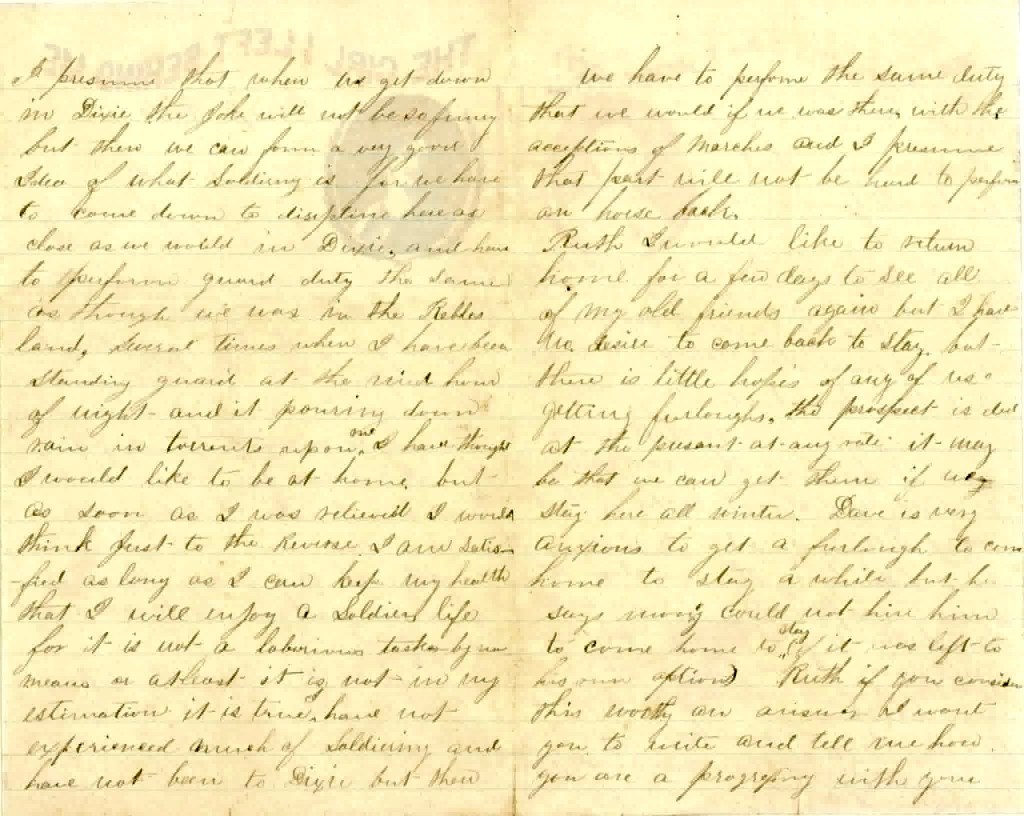 THE GIRL I LEFT BEHIND ME
I presume that when us get down
in Dixie the Joke will not be so funny
but then we can form a very good
Idea of what Soldiering is for we have
to come down to displine here as
close as we would in Dixie, and have
to perform guard duty the same
as though we was in the Rebles
land, Several times when I have been
standing guard at the mid hour
of night and it pouring down
rain in torrents upon me I have thought
I would like to be at home, but
as soon as I was relieved I would
think Just to the Reverse. I am Satis-
-fied as long as I can keep my health
that I will enjoy a Soldier life
for it is not a laborious task by no
means or atleast it is not in my
estimation it is true, have not
experienced much of Soldiering and
have not been to Dixie but then
we have to perfome the same duty
that we would if we was there, with the
acceptions of Marches and I presume
that part will not be hard to perform
on horse back.
Ruth I would like to return
home for a few days to see all
of my old friends again but I have
no desire to come back to stay. but
there is little hopes of any of us
getting furloughs, the prospect is dul
at the present at any rate it may
be that we can get them if we
stay here all winter. Dave is very
anxious to get a furlough to come
home to stay a while but he
says money could not hire him
to come home to stay (if it was left to
his own option) Ruth if you consider
this worthy an answer I want
you to write and tell me how
you are a progressing with your